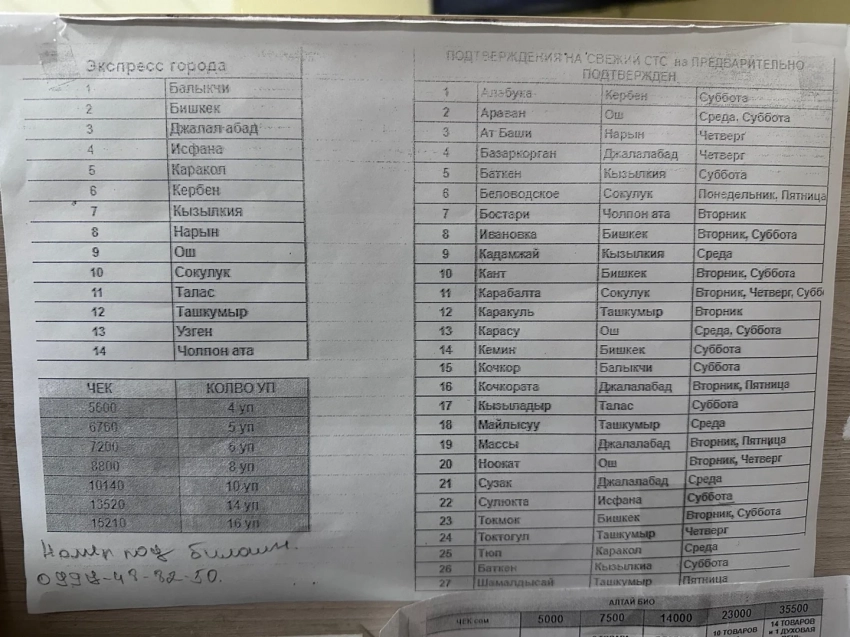 Экспресс города
1 Балыкчи
2 Бишкек
3 Джалал абад
4 Исфана
5 Каракол
6 Кербен
7 Кызылкия
8 Нарын
9 Ош
10 Сокулук
11 Талас
12 Ташкумыр
13 Узген
14 Чолпон ата
ЧЕК КОЛВО УП
5600 4 уп
6760 5 уп
7200 6 уп
8800 8 уп
10140 10 уп
13520 14 уп
15210 16 уп
Номер под
ПОДТВЕРЖДЕНИЯ НА СВЕЖИИ СТС на ПРЕДВАРИТЕЛЬНО
ПОДТВЕРЖДЕН
1 Алабука Кербен Суббота
2 Араван Ош Среда, Суббота
3 Ат Баши Нарын Четверг
4 Базаркорган Джалалабад Четверг
5 Баткен Кызылкия Суббота
6 Беловодское Сокулук Понедельник, Пятница
7 Бостари Чолпон ата Вторник
8 Ивановка Бишкек Вторник, Суббота
9 Кадамжай Кызылкия Среда
10 Кант Бишкек Вторник, Суббота
11 Карабалта Сокулук Вторник, Четверг, Субб
12 Каракуль Ташкумыр Вторник
13 Карасу Ош Среда, Суббота
14 Кемин Бишкек Суббота
15 Кочкор Балыкчи Суббота
16 Кочкората Джалалабад Вторник, Пятница
17 Кызыладыр Талас Суббота
18 Майлысуу Ташкумыр Среда
19 Массы Джалалабад Вторник, Пятница
20 Ноокат Ош Вторник, Четверг
21 Сузак Джалалабад Среда
22 Сулюкта Исфана Суббота
23 Токмок Бишкек Вторник, Суббота
24 Токтогул Ташкумыр Четверг
25 Тюп Каракол Среда
26 Баткен Кызылкиа Суббота
27 Шамалдысай Ташкумыр Пятница
АЛТАЙ БИО
ЧЕК сом 5000 7500 14000 23000 35500
10 ТОВАРОВ 14 ТОВАРОВ
и 1 ДУХОВАЯ